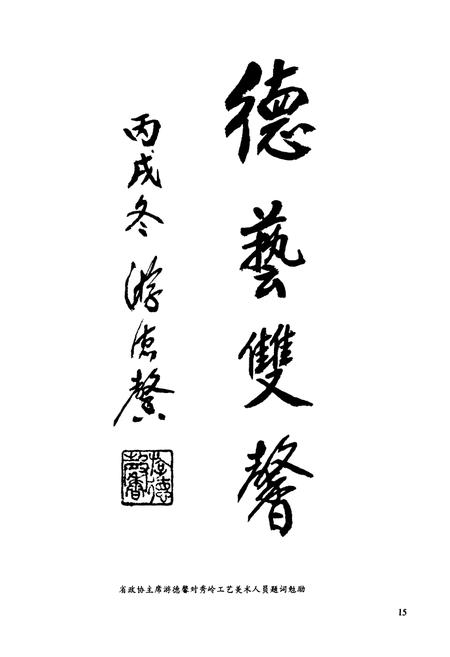 德藝雙馨
丙戌冬
游德馨
省政协主席游德馨对秀岭工艺美术人员题词勉励
15